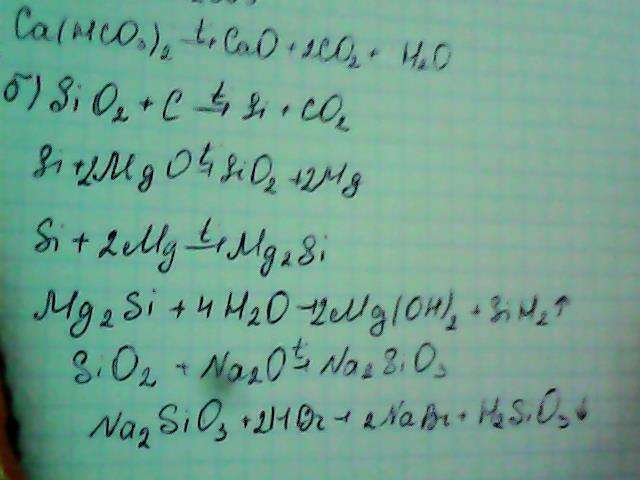 Ca(HCO₃)₂ t→ CaO + 2CO₂ + H₂O
б) SiO₂ + C t→ Si + CO₂
Si + 2MgO t→ SiO₂ + 2Mg
Si + 2Mg t→ Mg₂Si
Mg₂Si + 4H₂O → 2Mg(OH)₂ + SiH₂↑
SiO₂ + Na₂O t→ Na₂SiO₃
Na₂SiO₃ + 2HBr → 2NaBr + H₂SiO₃↓